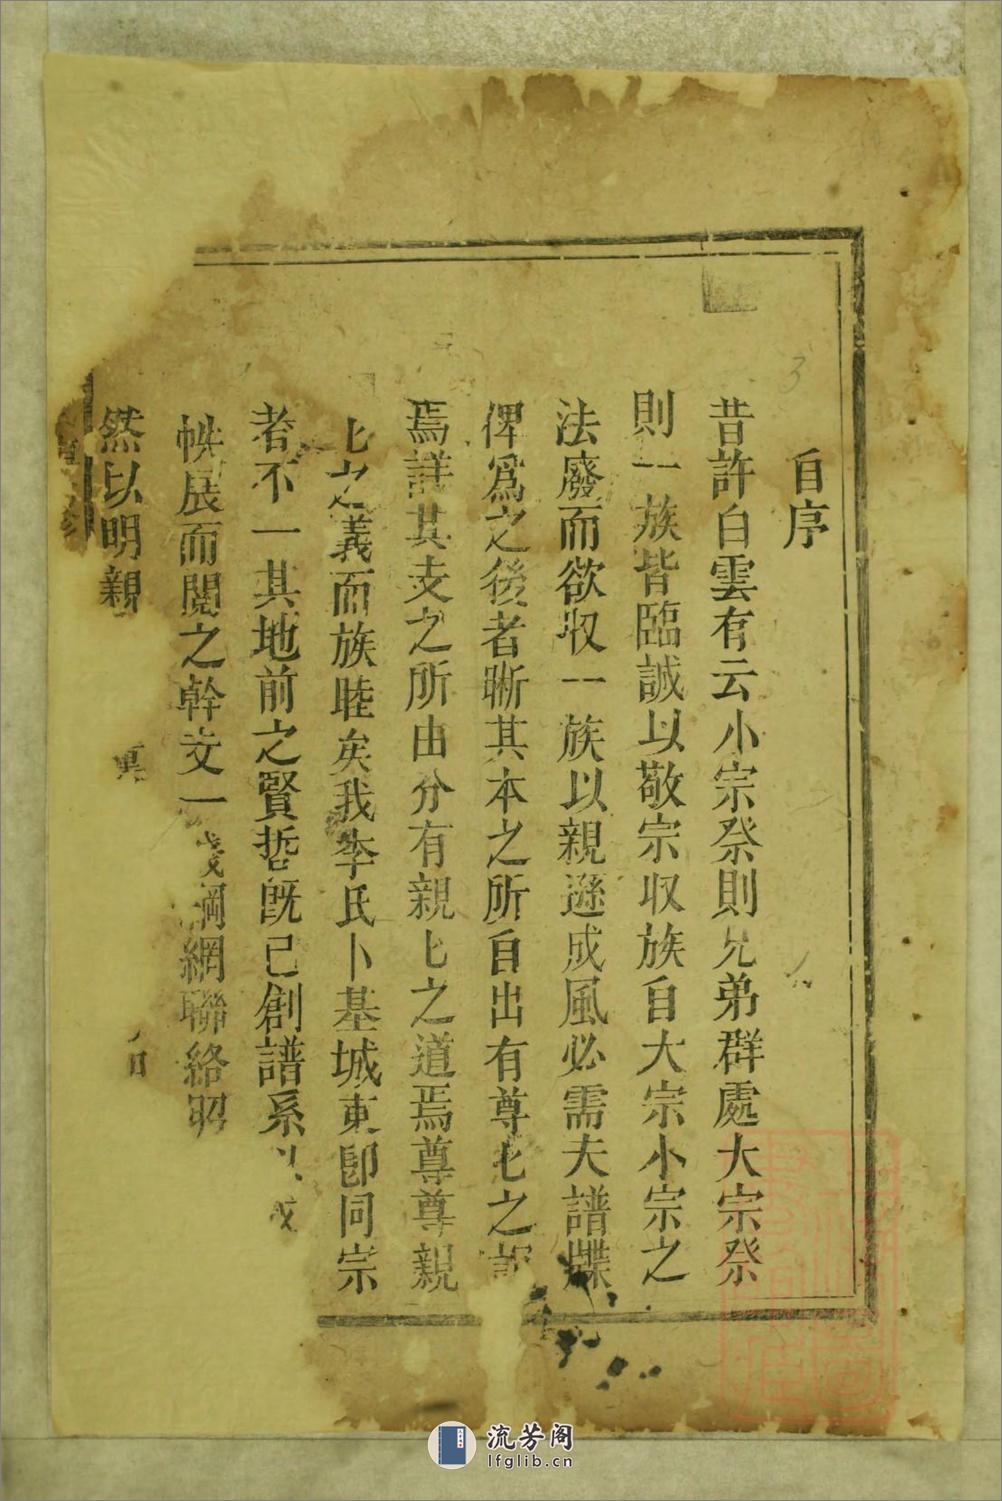 自序
昔許白雲有云小宗祭則兄弟群處大宗祭
則一族皆臨誠以敬宗収族自大宗小宗之
法廢而欲収一族以親遜成風必需夫譜牒
俾爲之後者晰其本之所自出有尊匕之
焉詳其支之所由分有親匕之道焉尊尊親
匕之義而族睦矣我李氏卜基城東卽同宗
者不一其地前之賢哲旣已創譜系以
帙展而閱之幹支一綱網聯絡昭
然以明親
3
流芳阁
lfglib.cn